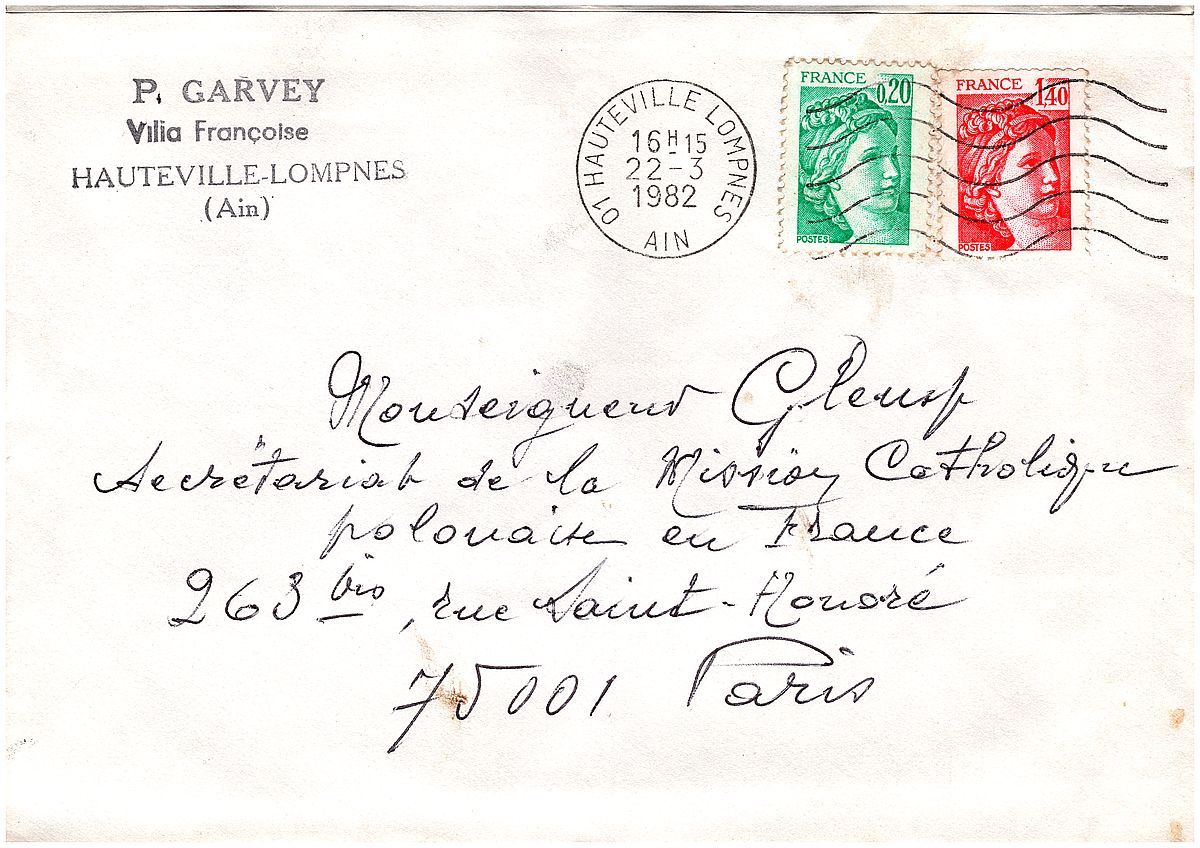 P. GARVEY
Villa Françoise
HAUTEVILLE-LOMPNES
(Ain)
01 HAUTEVILLE LOMPNES
16H15
22-3
1982
AIN
FRANCE 0,20
POSTES
FRANCE 1,40
POSTES
Monseigneur
Secrétariat de la Mission Catholique
polonaise en France
263 bis, rue Saint-Honoré
75001 Paris